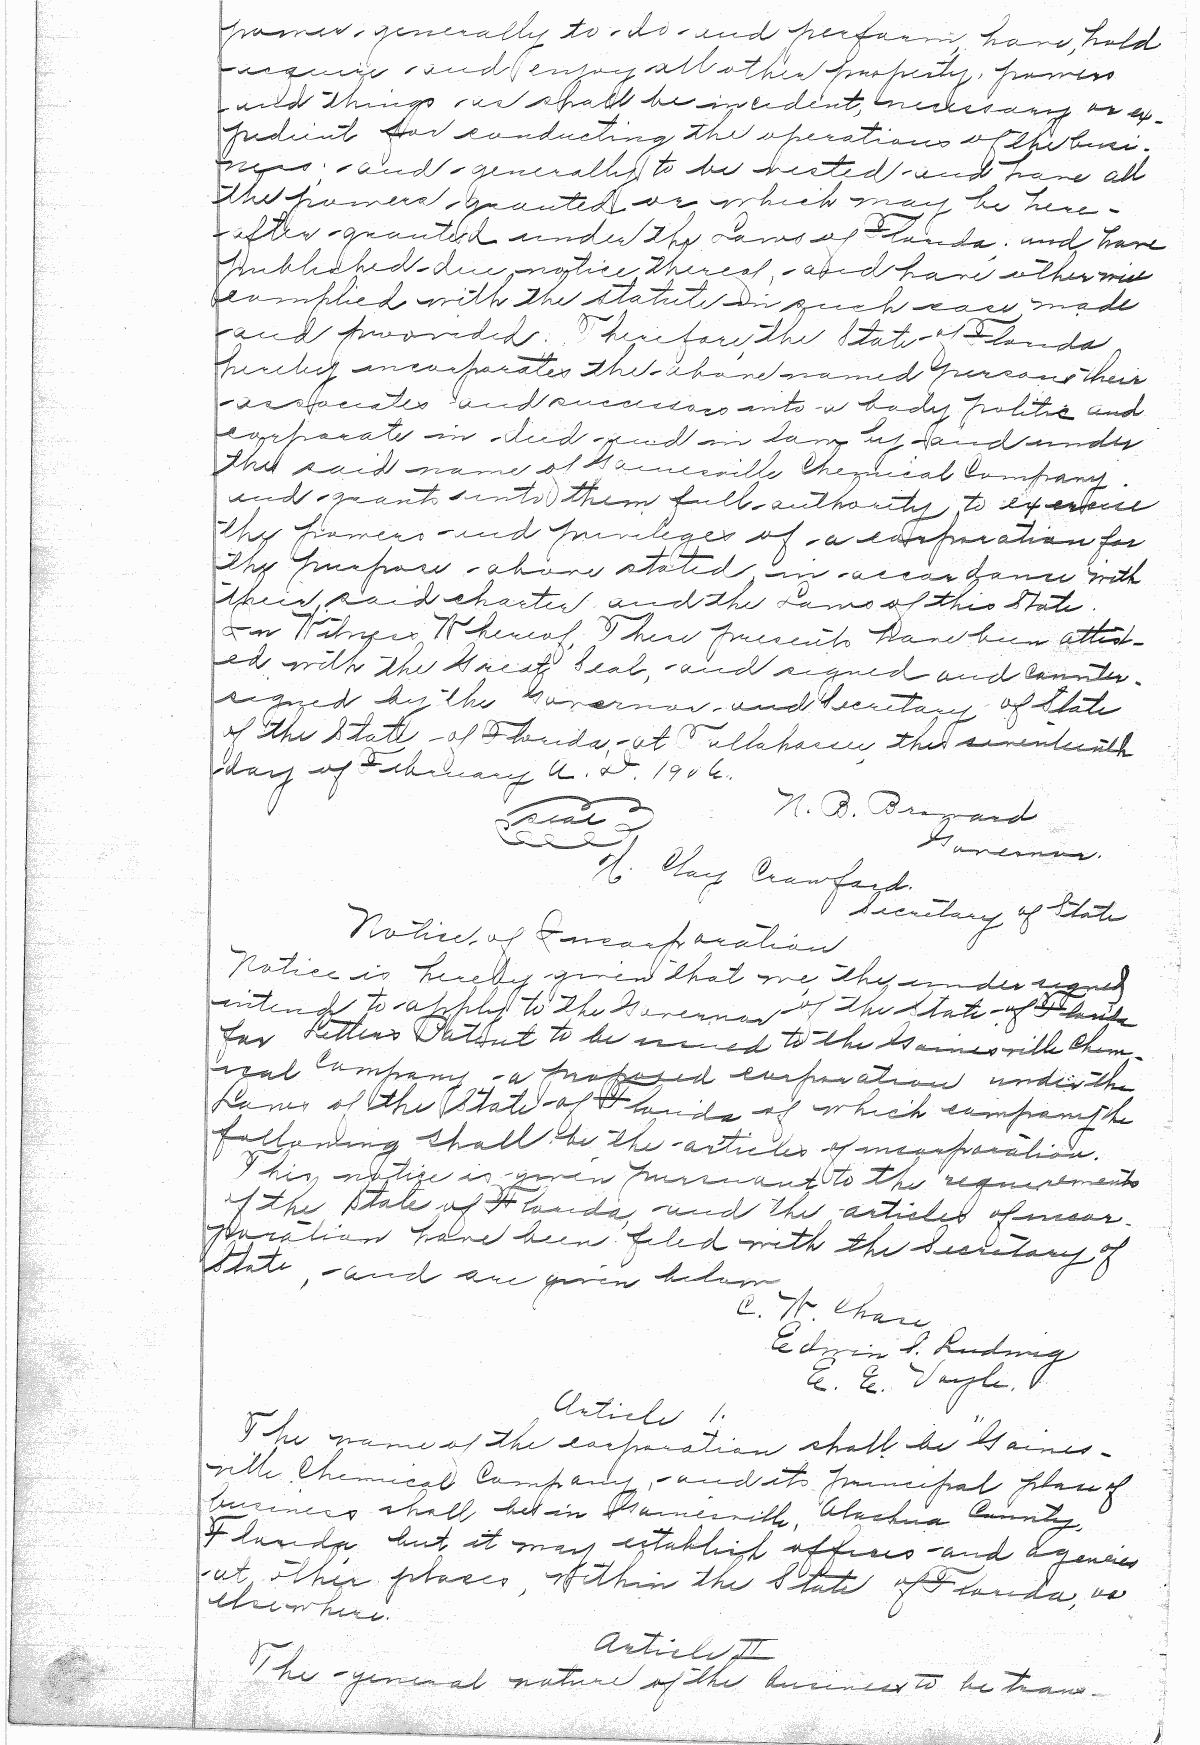 power generally to do and perform, have, hold
acquire and enjoy all other property, powers
and things as shall be incident, necessary or ex-
pedient for conducting the operations of the busi-
ness; and generally to be vested and have all
the powers granted or which may be here-
after granted under the Laws of Florida, and have
published due notice thereof, and have otherwise
complied with the statute in such case made
and provided. Therefore, the State of Florida
hereby incorporates the above named persons their
associates and successors into a body politic and
corporate in deed and in law by and under
the said name of Gainesville Chemical Company.
and grants unto them full authority to exercise
the powers and privileges of a corporation for
the purpose above stated, in accordance with
their said charter and the Laws of this State.
In Witness Whereof, These presents have been attest-
ed with the Great Seal, and signed and counter-
signed by the Governor and Secretary of State
of the State of Florida, at Tallahassee, the seventeenth
day of February A. D. 1906.
N. B. Broward
seal
Governor.
H. Clay Crawford.
Secretary of State
Notice of Incorporation
Notice is hereby given that we, the undersigned
intend to apply to the Governor of the State of Florida
for Letters Patent to be issued to the Gainesville Chem-
ical Company a proposed corporation under the
Laws of the State of Florida of which company the
following shall be the articles of incorporation.
This notice is given pursuant to the requirements
of the State of Florida, and the articles of incor-
poration have been filed with the Secretary of
State, and are given below
C. W. Chase
Edwin S. Ludwig
E. E. Voyle.
Article 1.
The name of the corporation shall be "Gaines-
ville Chemical Company, and its principal place of
business shall be in Gainesville, Alachua County,
Florida, but it may establish offices and agencies
at other places, within the State of Florida, or
elsewhere.
Article II
The general nature of the business to be trans-